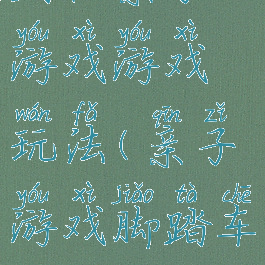 yóu xì yóu xì
游戏游戏
wán fǎ qīn zǐ
玩法(亲子
yóu xì jiǎo tà chē
游戏脚踏车